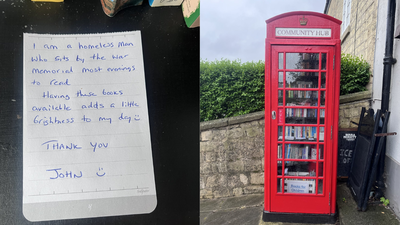 I am a homeless man
who sits by the war
memorial most evenings
to read
Having these books
available adds a little
brightness to my day
THANK YOU
JOHN
COMMUNITY HUB